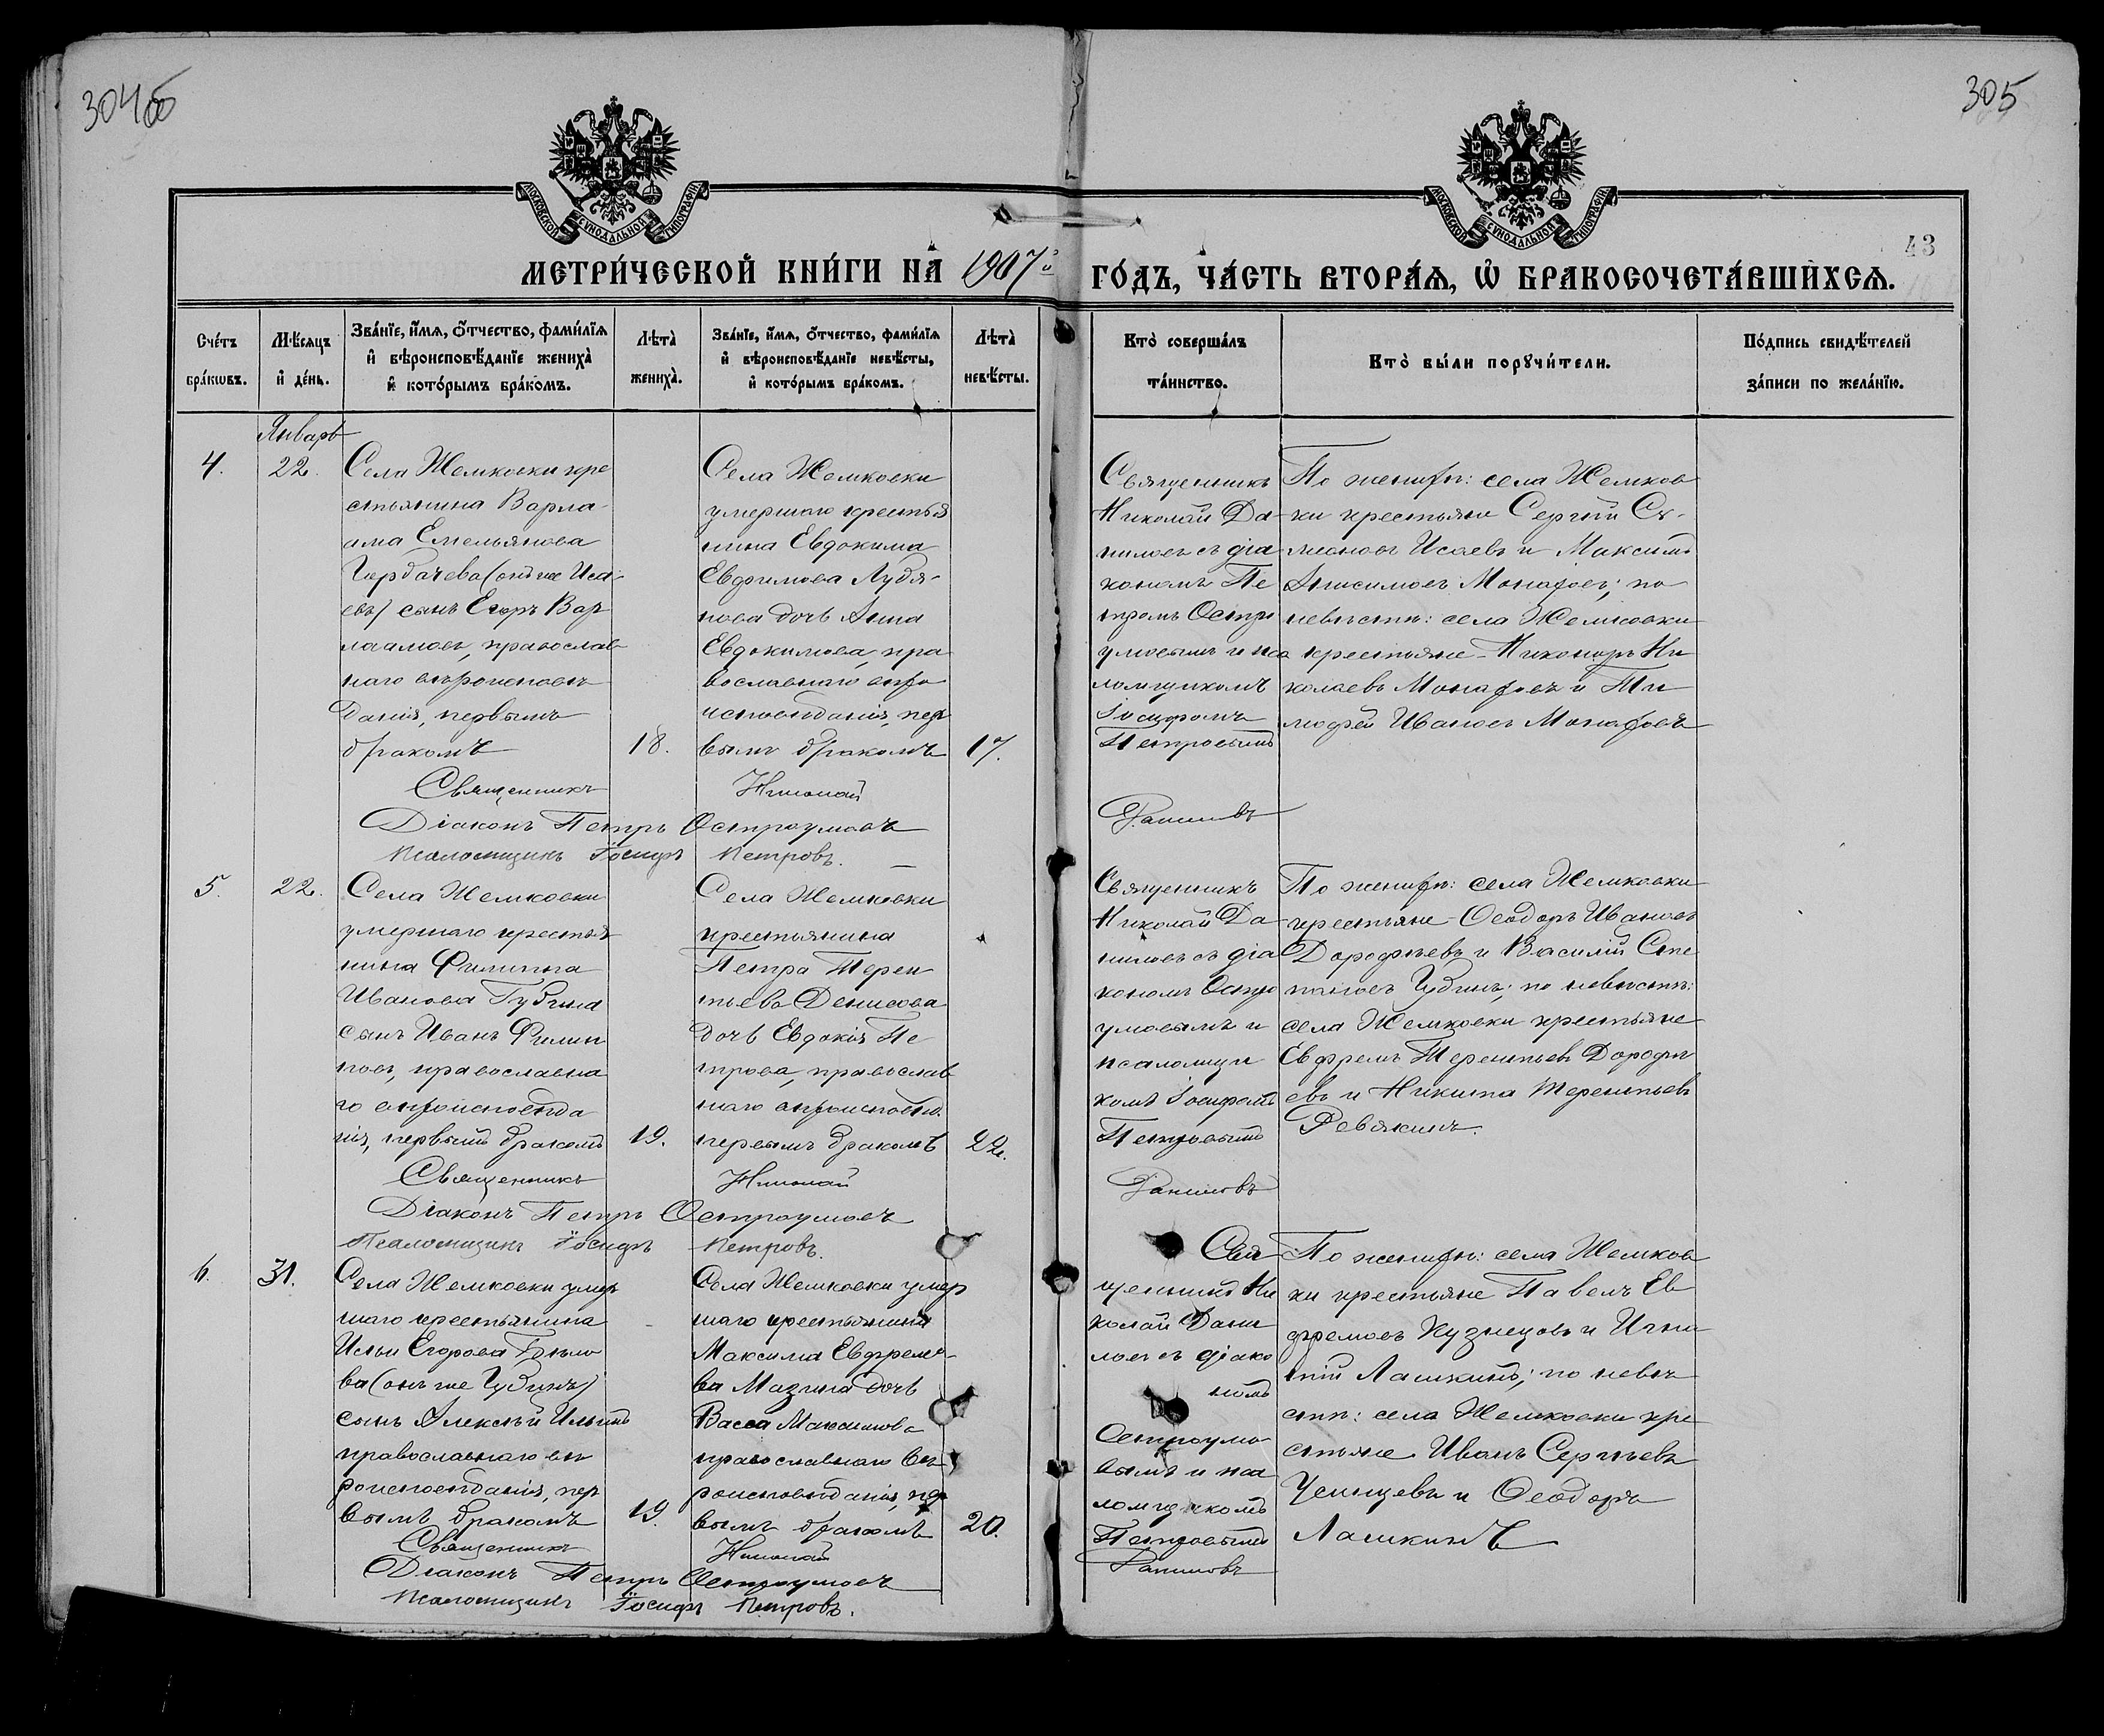 304об
305
МОСКОВСКОЙ СѴНОДАЛЬНОЙ ТИПОГРАФІИ
МОСКОВСКОЙ СѴНОДАЛЬНОЙ ТИПОГРАФІИ
43
МЕТРИ́ЧЕСКОЙ КНИ́ГИ НА 1907й ГО́ДЪ, ЧА́СТЬ ВТОРА́Ѧ, Ѡ БРАКОСОЧЕТА́ВШИХСѦ.
Сче́тъ
бра́кѡвъ.
Мѣ́сѧцъ
и де́нь.
Зва́нїе, и́мѧ, ѻ́тчество, фами́лїѧ
и вѣроисповѣ́данїе жениха̀
и кото́рымъ бра́комъ.
Лѣта̀
жениха̀.
Зва́нїе, и́мѧ, ѻ́тчество, фами́лїѧ
и вѣроисповѣ́данїе невѣ́сты,
и кото́рымъ бра́комъ.
Лѣта̀
невѣ́сты.
Кто̀ соверша́лъ
та́инство.
Кто̀ бы́ли порꙋчи́тели.
По́дпись свидѣ́телей
за́писи по жела́нїю.
Январь
4.
22.
Села Жемковки кре
стьянина Варла-
ама Емельянова
(онъ же Иса-
евъ) сынъ Егоръ Вар
лаамовъ, православ
наго вѣроисповѣ
данія, первымъ
бракомъ
18.
Села Жемковки
умершаго крестья
нина Евдокима
Евфимова Лубя-
нова дочь Анна
Евдокимова, пра
вославнаго вѣро
исповѣданія, пер
вымъ бракомъ
17.
Священникъ
Николай Да-
ниловъ съ діа
кономъ Пе
тромъ Остро
умовымъ и пса
ломщикомъ
Іосифомъ
Петровымъ
По женихѣ: села Жемков
ки крестьяне Сергій Си-
меоновъ Исаевъ и Максимъ
Анисимовъ Монаховъ; по
невѣстѣ: села Жемковки
крестьяне Никоноръ Ни
колаевъ Монаховъ и Ти
мофей Ивановъ Монаховъ
Священникъ Николай Даниловъ
Діаконъ Петръ Остроумовъ
Псаломщикъ Іосифъ Петровъ.
5.
22.
Села Жемковки
умершаго крестья
нина Филиппа
Иванова Губина
сынъ Иванъ Филип
повъ, православна
го вѣроисповѣда
нія, первымъ бракомъ
19.
Села Жемковки
крестьянина
Петра Терен
тьева Денисова
дочь Евдокія Пе
трова, православ
наго вѣроисповѣд.
первымъ бракомъ
22.
Священникъ
Николай Да-
ниловъ съ діа
кономъ Остро
умовымъ и
псаломщи
комъ Іосифомъ
Петровымъ
По женихѣ: села Жемковки
крестьяне Ѳеодоръ Ивановъ
Дорофѣевъ и Василій Сте
пановъ Губинъ; по невѣстѣ:
села Жемковки крестьяне
Евфремъ Терентьевъ Дорофѣ
евъ и Никита Терентьевъ
Ревякинъ.
Священникъ Николай Даниловъ
Діаконъ Петръ Остроумовъ
Псаломщикъ Іосифъ Петровъ.
6.
31.
Села Жемковки умер
шаго крестьянина
Ильи Егорова
ва (онъ же Губинъ)
сынъ Алексѣй Ильинъ
православнаго вѣ
роисповѣданія, пер
вымъ бракомъ
19.
Села Жемковки умер
шаго крестьянина
Максима Евфремо-
ва Мазина дочь
Васса Максимова
православнаго вѣ
роисповѣданія, пер
вымъ бракомъ
20.
Свя
щенникъ Ни
колай Дани
ловъ съ діако
номъ
Остроумо
вымъ и пса
ломщикомъ
Петровымъ
По женихѣ: села Жемков
ки крестьяне Павелъ Ев
фремовъ Кузнецовъ и Игна
тій Лашкинъ; по невѣ
стѣ: села Жемковки кре
стьяне Иванъ Сергѣевъ
и Ѳеодоръ
Лашкинъ
Священникъ Николай Даниловъ
Діаконъ Петръ Остроумовъ
Псаломщикъ Іосифъ Петровъ.